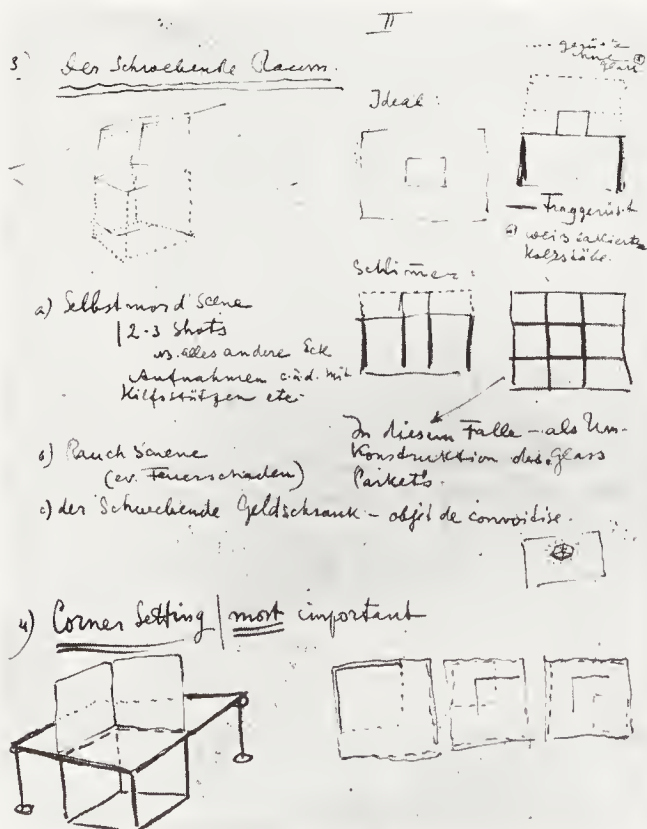 II
3) Der Schwebende Raum.
.... gerüste
Ideal:
Traggerüst
weis lakierte
Holzstäbe.
Schlimmer:
a) Selbstmord Scene
2-3 Shots
alles andere Eck
Aufnahmen c.à.d. mit
Hilfsstützen etc.
In diesem Falle - als Um-
Konstruktion des Glass
Parkets.
b) Rauch Scene
(ev. Feuerschaden)
c) der Schwebende Geldschrank - objet de convoitise.
4) Corner Setting | most important